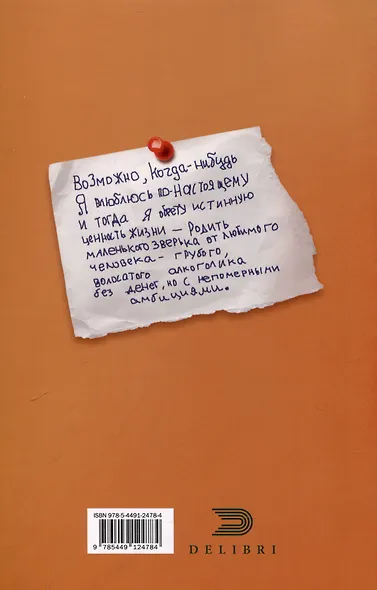 Возможно, когда-нибудь
Я влюблюсь по-настоящему
и тогда я обрету истинную
ценность жизни — родить
маленького зверька от любимого
человека - грубого,
волосатого алкоголика
без денег, но с непомерными
амбициями.
ISBN 978-5-4491-2478-4
9 785449 124784
DELIBRI